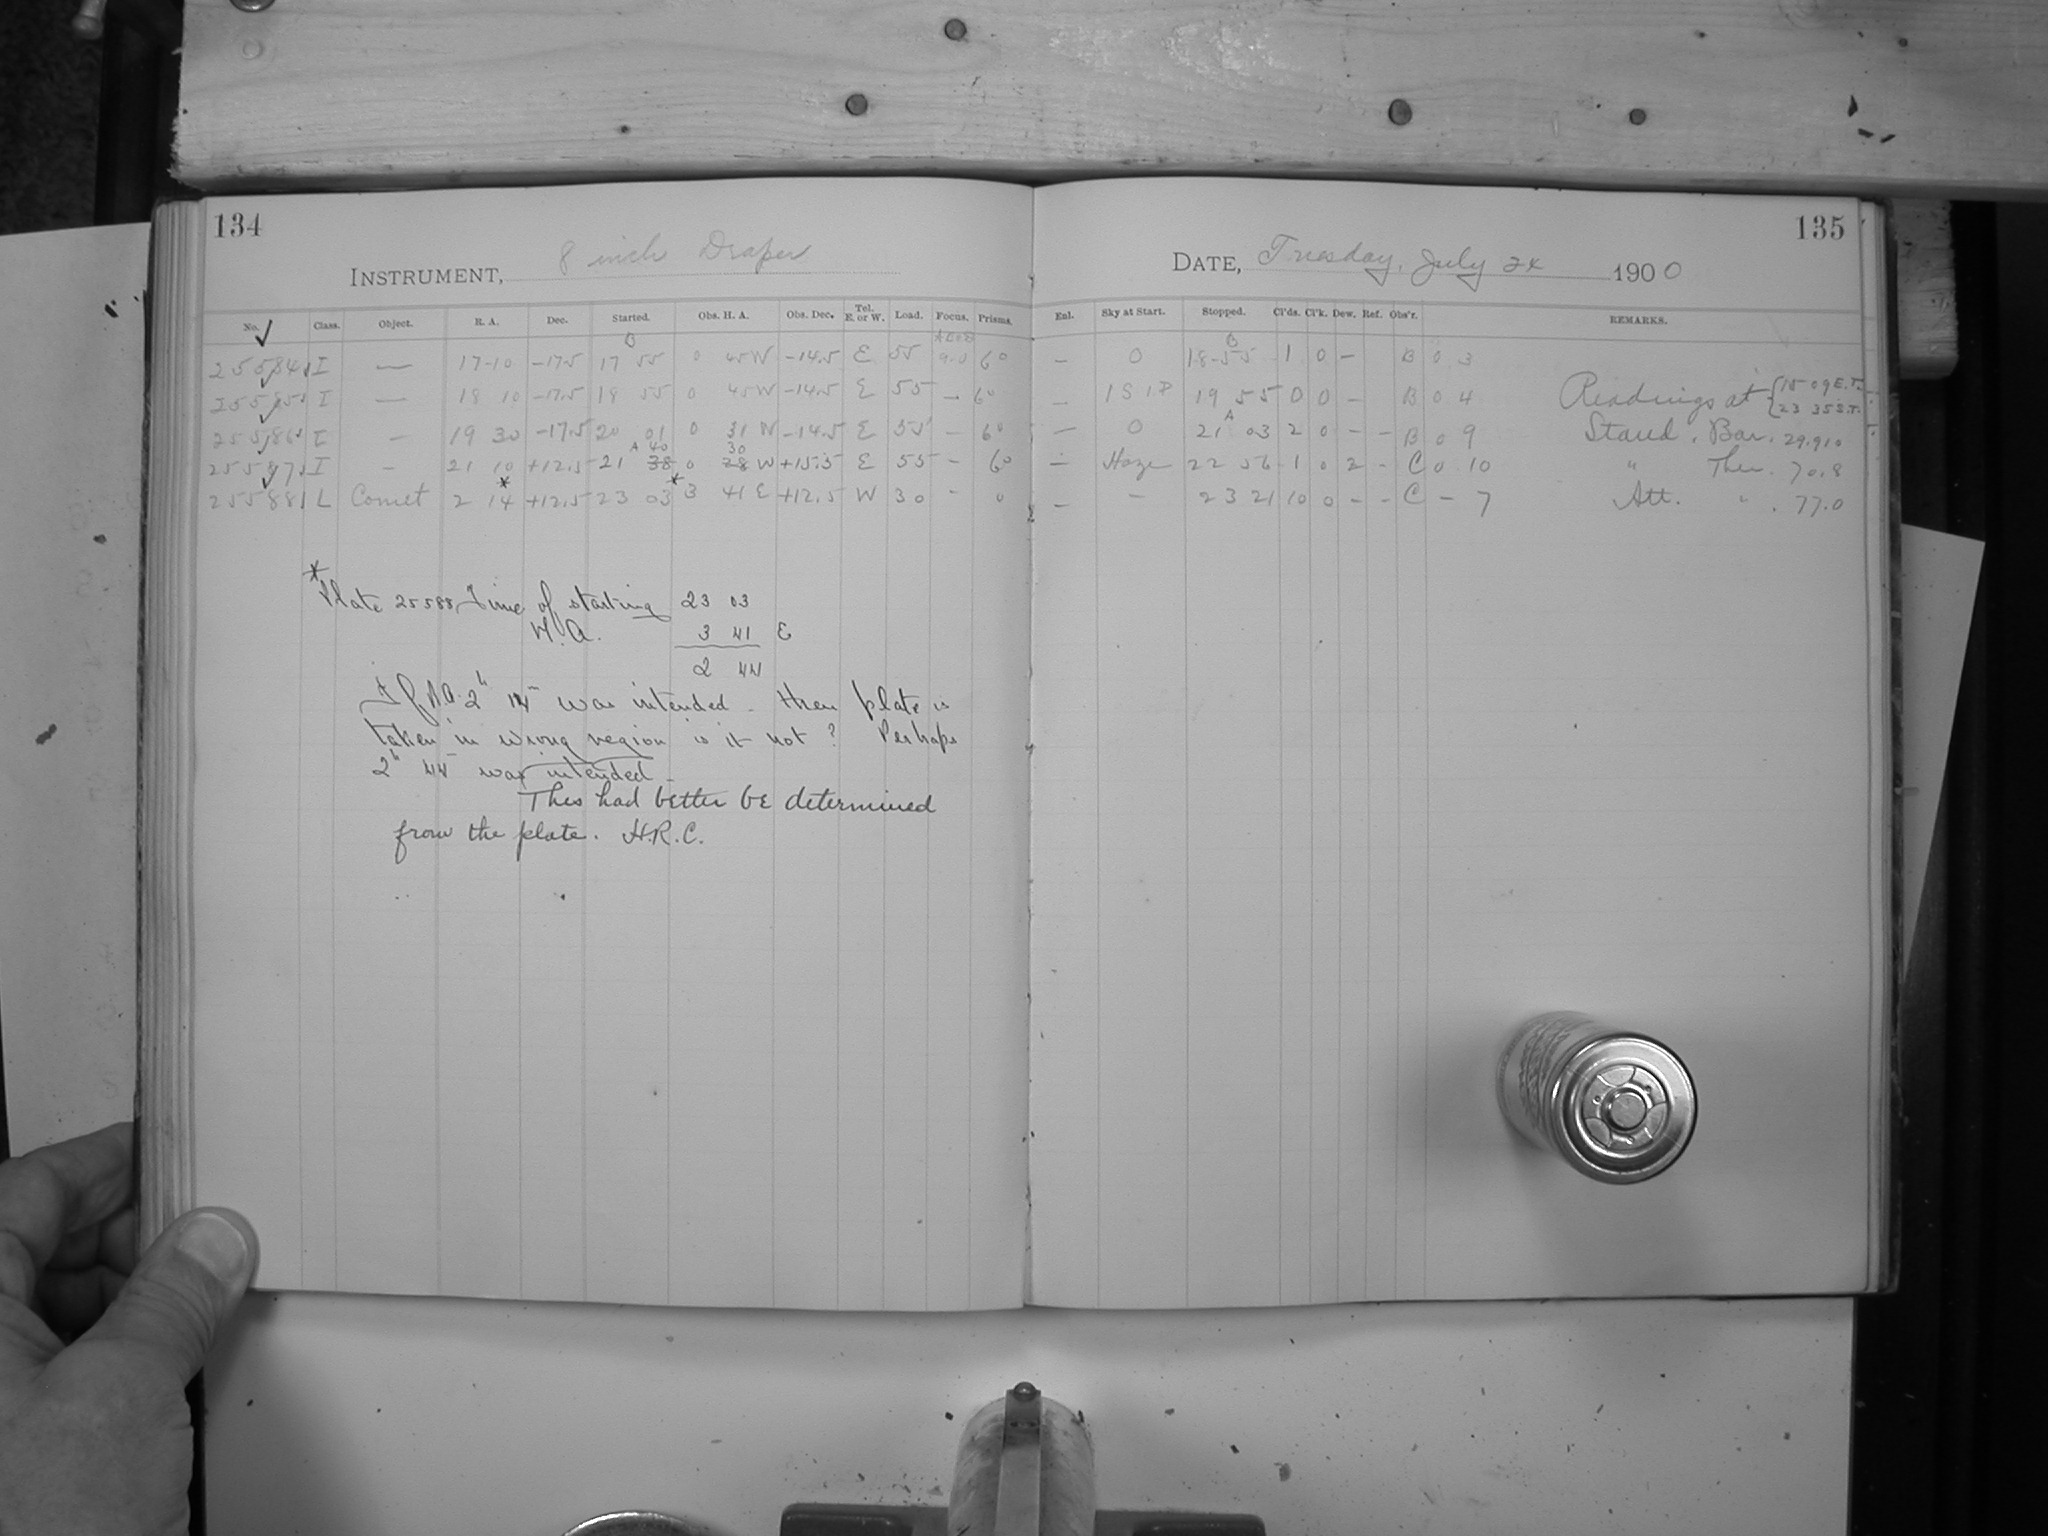 134
INSTRUMENT, 8 inch Draper
No. Class. Object. R. A. Dec. Started. Obs. H. A. Obs. Dec. Tel. E. or W. Load. Focus. Prisms.
25584 I — 17-10 -17.5 17 55 0 45 W -14.5 E 55 9.0 60
25585 I — 18 10 -17.5 18 55 0 45 W -14.5 E 55 — 60
25586 I — 19 30 -17.5 20 01 0 31 W -14.5 E 55 — 60
25587 I — 21 10 +12.5 21 38 40 0 28 30 W +15.5 E 55 — 60
25588 L Comet 2 14* +12.5 23 03* 3 41 E +12.5 W 30 - 0
* Plate 25588, Time of starting 23 03
H.A. 3 41 E
2 44
If R.A. 2h 14m was intended - then plate is
taken in wrong region is it not? Perhaps
2h 44m was intended -
This had better be determined
from the plate. H.R.C.
135
DATE, Tuesday, July 24 1900
Enl. Sky at Start. Stopped. Cl'ds. Cl'k. Dew. Ref. Obs'r. REMARKS.
— 0 18-55 1 0 — B 0 3
— 19 55 0 0 — B 0 4 Readings at { 15 09 E.T.
23 35 S.T.
— 0 21 03 2 0 - - B 0 9 Stand. Bar. 29.910
— Haze 22 56 1 0 2 - C 0 10 " Ther. 70.8
— - 23 21 10 0 - - C - 7 Att. " . 77.0